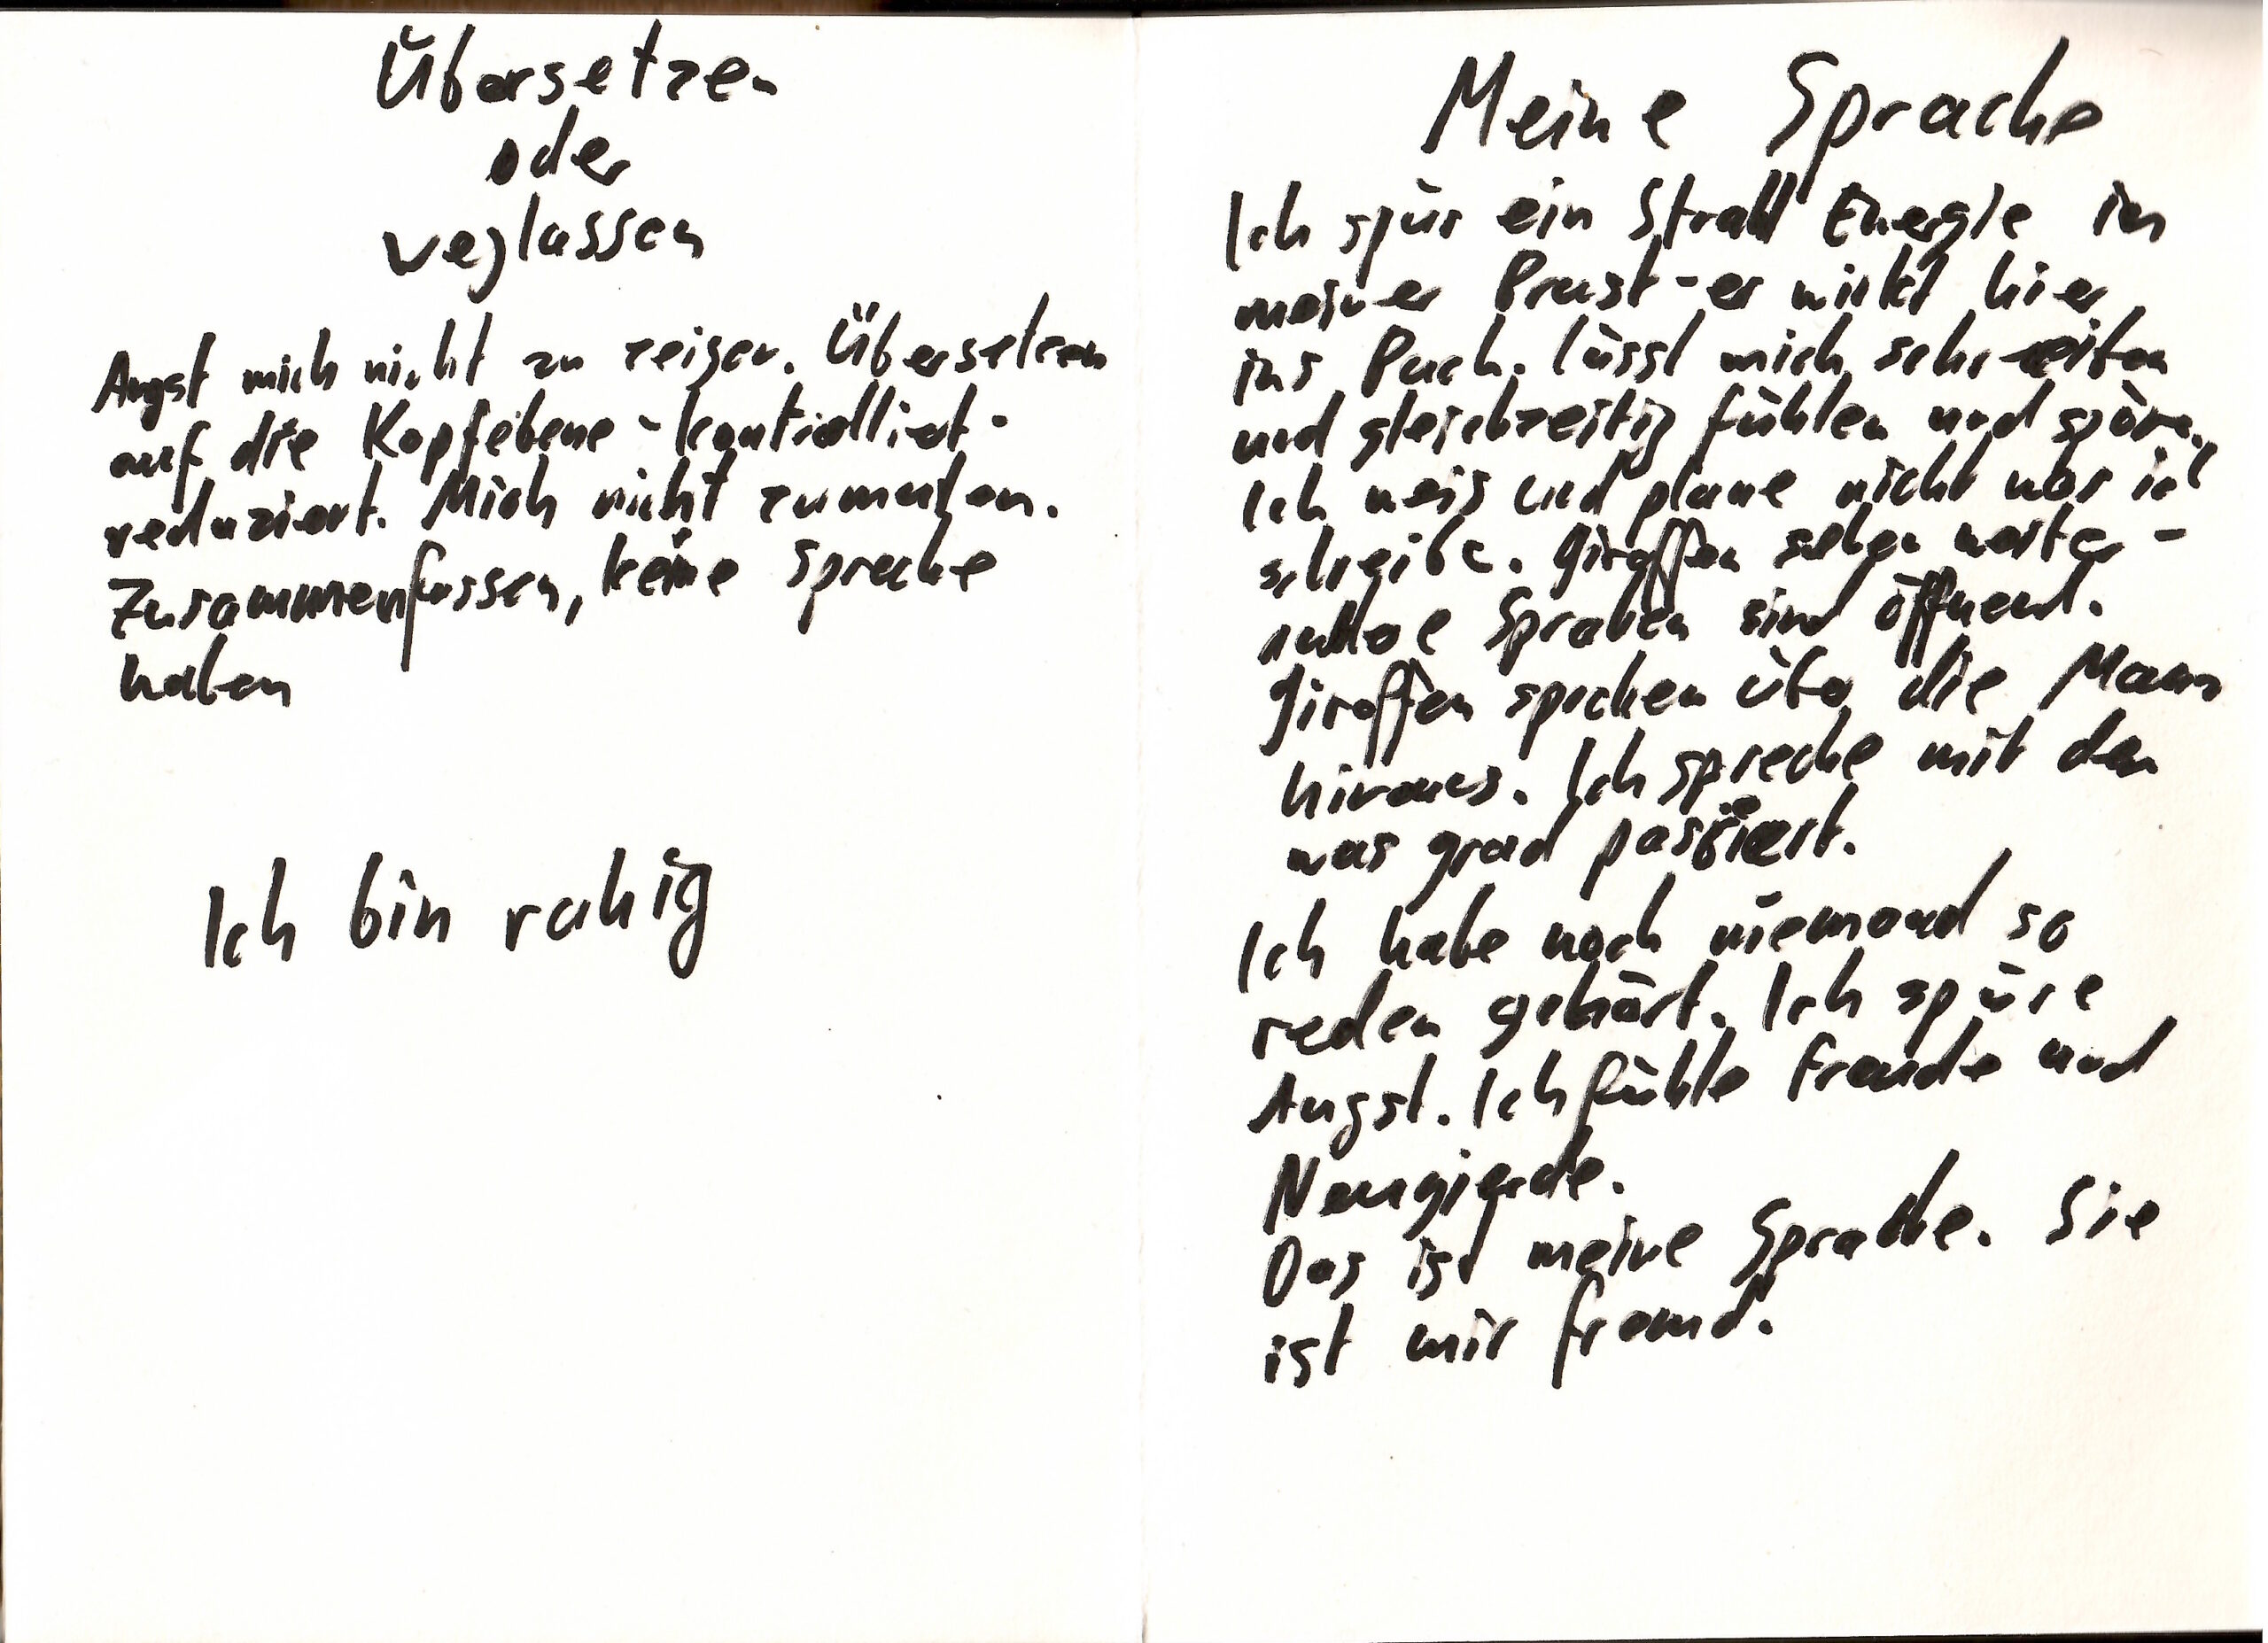 Übersetzen
oder
weglassen
Angst mich nicht zu zeigen. Übersetzen
auf die Kopfebene - kontrolliert -
reduziert. Mich nicht zumuten.
Zusammenfassen, keine spreche
haben
Ich bin ruhig
Meine Sprache
Ich spür ein Strall Energie in
meiner Brust - er wirkt hier
ins Buch. lässt mich schreiben
und gleichzeitig fühlen und spüren.
Ich weis und plane nicht was ich
schreibe. Giraffen sehen weiter -
Sprachen sind öffnend.
Giraffen sprchen über die
hinaus. Ich spreche mit den
was grad passiert.
Ich habe noch niemand so
reden gehört. Ich spüre
Angst. Ich fühle Freude und
Neugierde.
Das ist meine Sprache. Sie
ist mir fremd.